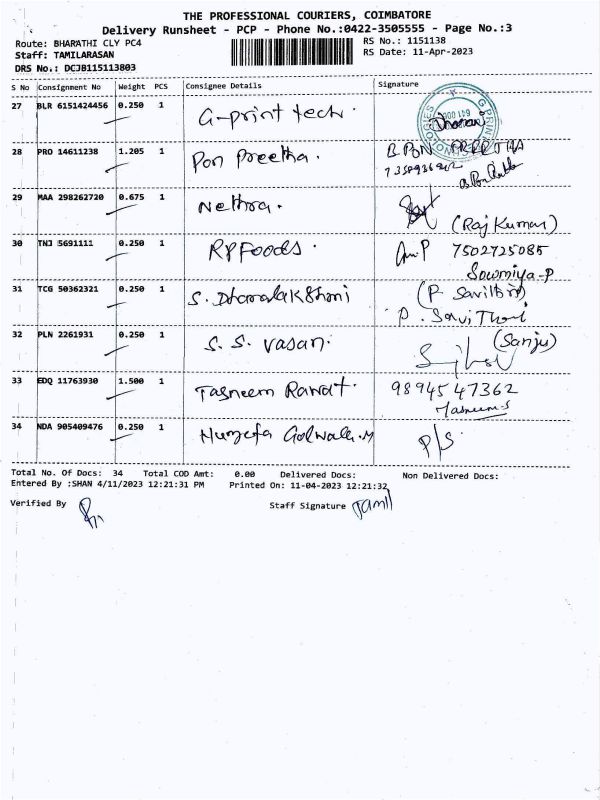 THE PROFESSIONAL COURIERS, COIMBATORE
Delivery Runsheet - PCP - Phone No.:0422-3505555 - Page No.:3
Route: BHARATHI CLY PC4
RS No.: 1151138
Staff: TAMILARASAN
RS Date: 11-Apr-2023
DRS No.: DCJB115113803
S No Consignment No Weight PCS Consignee Details Signature
27 BLR 6151424456 0.250 1 G-print tech.
28 PRO 14611238 1.205 1 Pon Preetha. B.PON PREETHA
29 MAA 298262720 0.675 1 Nethra. (Raj Kumar)
30 TNJ 5691111 0.250 1 RPFoods. 7502725085
Sowmiya-P
31 TCG 50362321 0.250 1 S.
P. Savithri
32 PLN 2261931 0.250 1 S. S. vasan. (Sanju)
33 EDQ 11763930 1.500 1 Tasneem Rawat. 9894547362
Tasneem.S
34 NDA 905409476 0.250 1 P/S
Total No. Of Docs: 34 Total COD Amt: 0.00 Delivered Docs: Non Delivered Docs:
Entered By :SHAN 4/11/2023 12:21:31 PM Printed On: 11-04-2023 12:21:32
Verified By Staff Signature Tamil